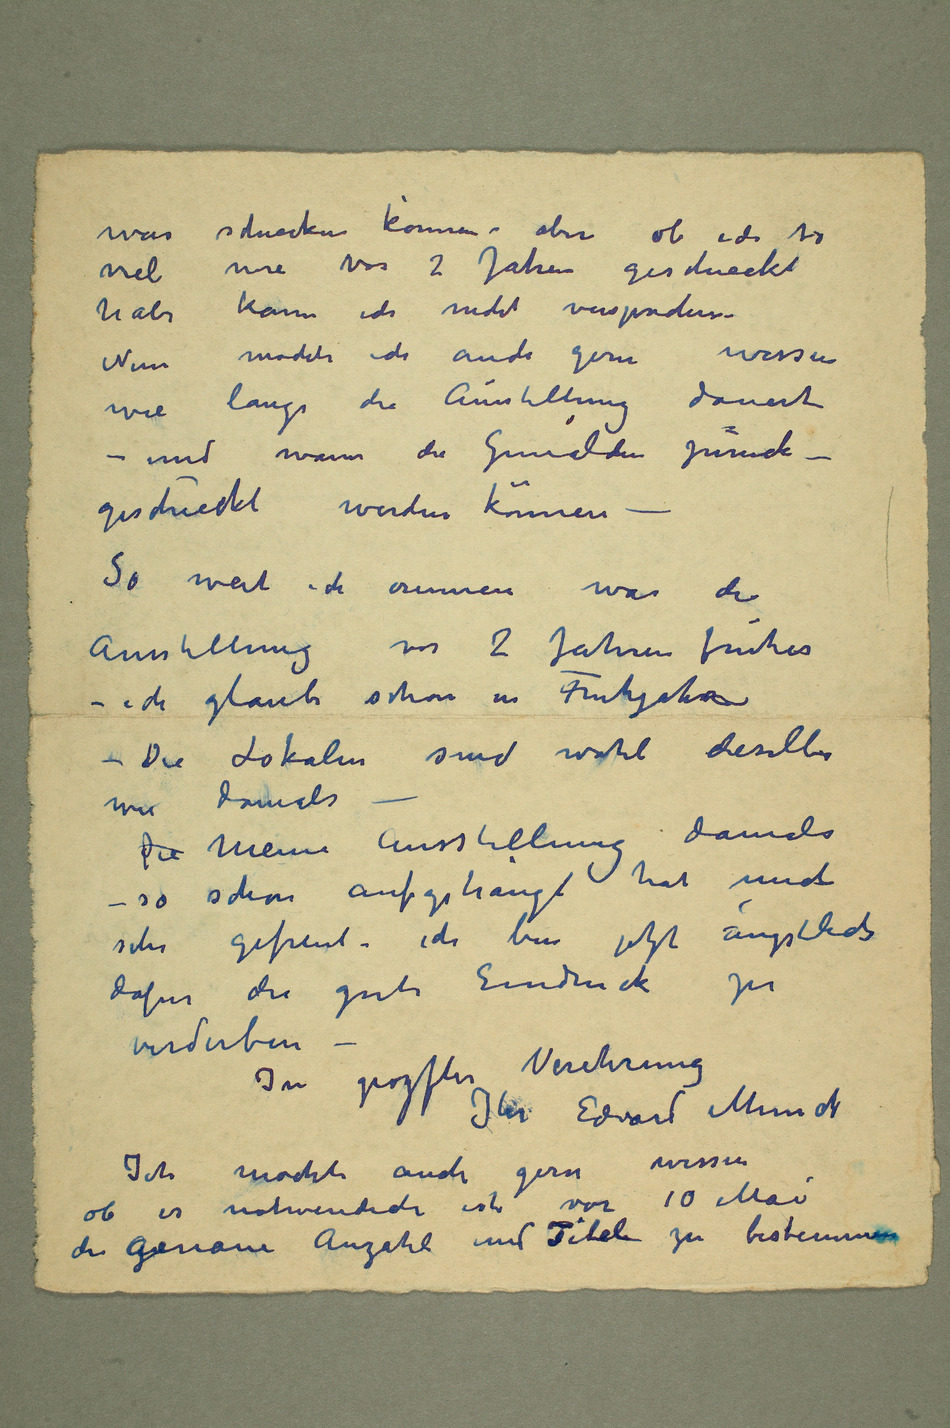 was schicken können – aber ob ich so
viel wie vor 2 Jahren geschickt
habe kann ich nicht versprechen –
Nun mochte ich auch gern wissen
wie lange die Ausstellung dauert
– und wann die Gemälden zurück –
geschickt werden können —
So weit ich erinnere war die
Ausstellung vor 2 Jahren früher
– ich glaube schon in Fruhjahr
– Die Lokalen sind wohl dieselbe
wie damals —
Die Meine Ausstellung damals
– so schön aufgehängt hat mich
sehr gefreut – ich bin jetzt ängstlich
dafur die gute Eindruck zu
verderben –
In Verehrung
Ihr Edvard Munch
Ich mochte auch gern wissen
ob es notwendich ist vor 10 Mai
die genaue Anzahl und Titeln zu bestemmen